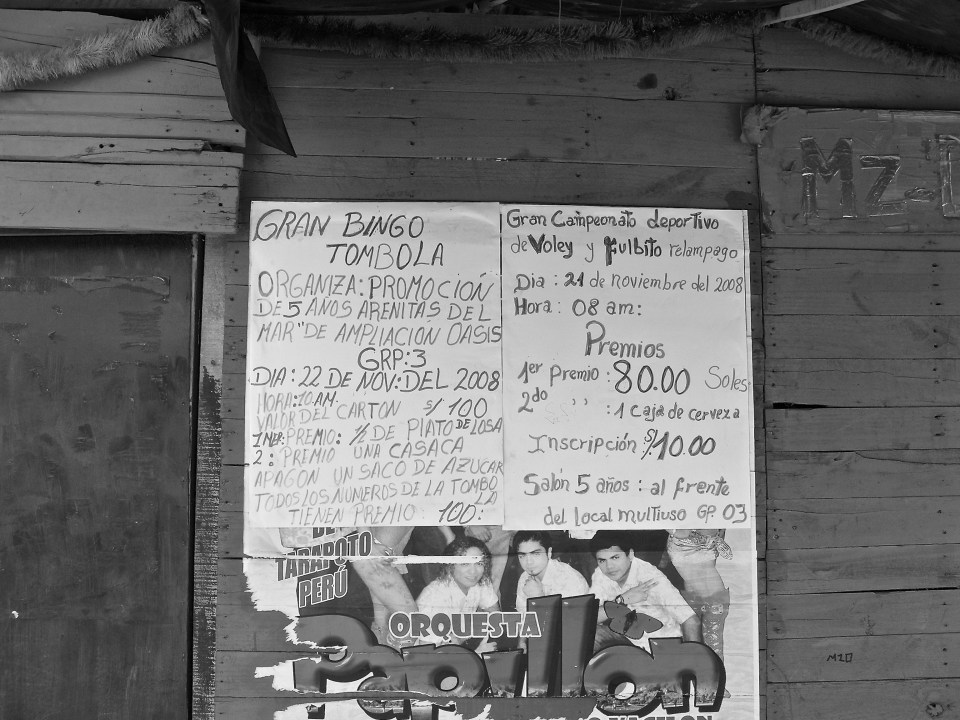 GRAN BINGO
TOMBOLA
ORGANIZA: PROMOCIÓN
DE 5 AÑOS ARENITAS DEL
MAR" DE AMPLIACIÓN OASIS
GRP:3
DIA: 22 DE NOV: DEL 2008
HORA: 10 AM.
VALOR DEL CARTON S/ 100
1NER: PREMIO: 1/2 DE PLATO DE LOSA
2: PREMIO UNA CASACA
APAGON UN SACO DE AZUCAR
TODOS LOS NUMEROS DE LA TOMBO
LA
TIENEN PREMIO: 100:
Gran Campeonato deportivo
de Voley y Fulbito relampago
Dia: 21 de noviembre del 2008
Hora: 08 am:
Premios
1er Premio: 80.00 Soles
2do ,, : 1 Caja de cerveza
Inscripción S/. 10.00
Salón 5 años: al frente
del local multiuso GP. 03
Mz-D
DE
TARAPOTO
PERÚ
ORQUESTA
Papillon
MZD